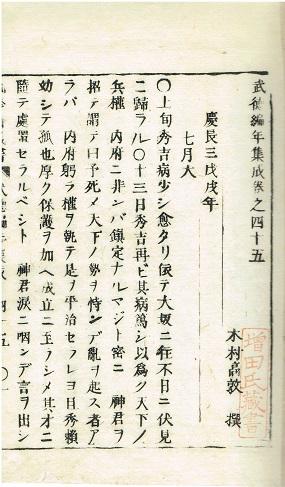 武徳編年集成巻之四十五
木村高敦 撰
慶長三戊戌年
七月大
〇上旬秀吉病少シ愈タリ仮テ大坂ニ在不日ニ伏見
ニ歸ラル〇十三日秀吉再ビ其病篤シ以為ク天下ノ
兵權 内府ニ非ンバ鎮定ナルマジト密ニ 神君ヲ
招テ謂テ曰予死メ天下ノ勢ヲ恃ンデ亂ヲ起ス者ア
ラバ 内府躬ラ權ヲ執テ是ヲ平治セラレヨ且秀頼
幼シテ孤也厚ク保護ヲ加ヘ成立ニ至ラシメ其才ニ
隨テ處置セラルベシト 神君涙ニ咽ンデ言ヲ出シ
増田氏蔵書